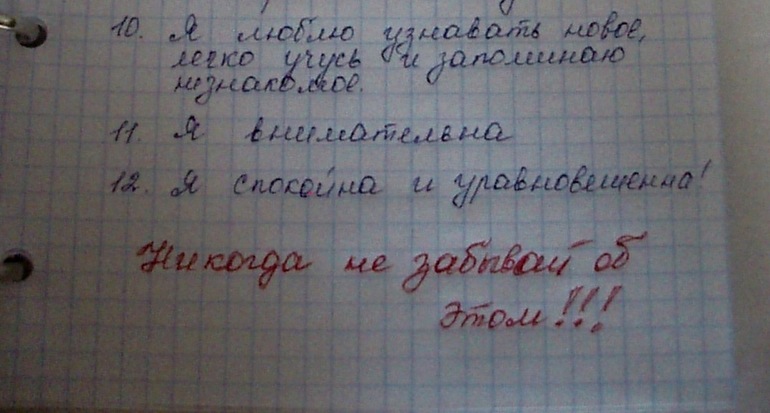 10. Я люблю узнавать новое,
легко учусь и запоминаю
незнакомое.
11. Я внимательна
12. Я спокойна и уравновешенна!
Никогда не забывай об
этом!!!